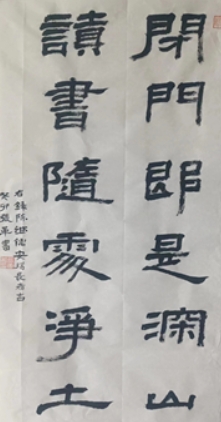 閉門即是深山
讀書隨處淨土
右錄陳繼儒
癸卯
書